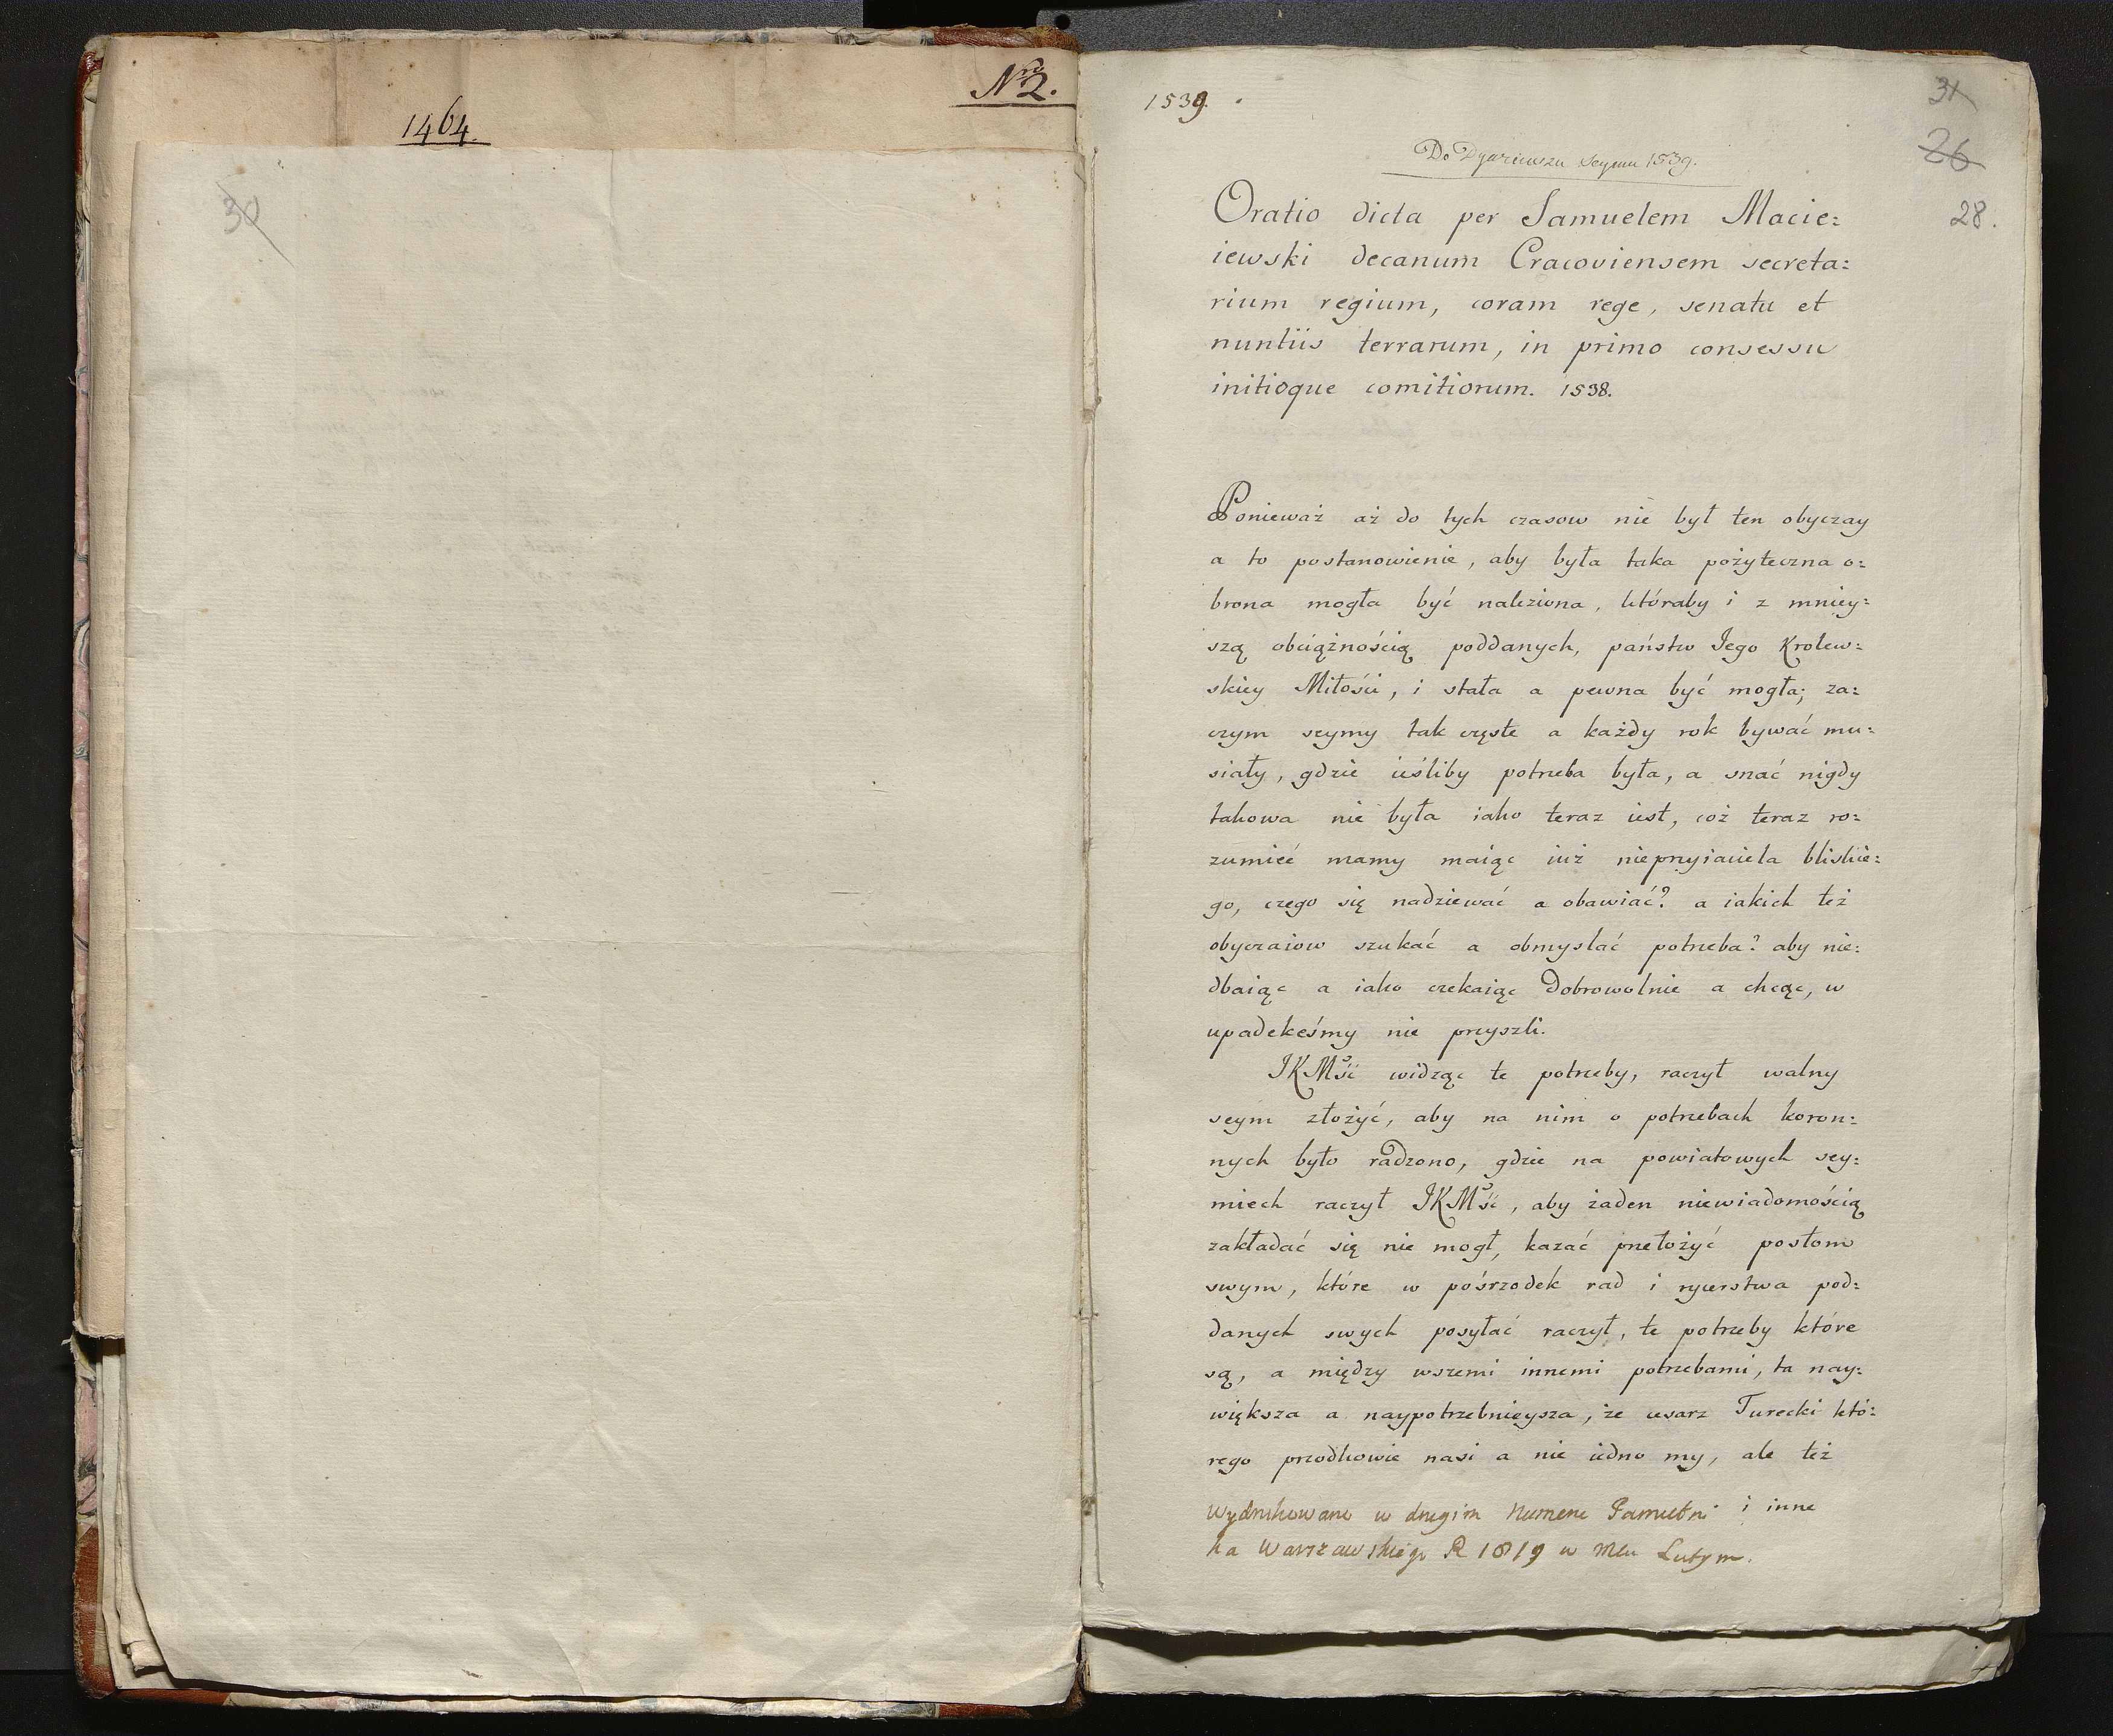 Nro 2.
1464.
30
1539.
31
26
28.
Do Dyariuszu Seymu 1539.
Oratio dicta per Samuelem Macie:
iewski decanum Cracoviensem secreta:
rium regium, coram rege, senatu et
nuntiis terrarum, in primo consessu
initioque comitiorum. 1538.
Ponieważ aż do tych czasow nie był ten obyczay
a to postanowienie, aby była taka pożyteczna o:
brona mogła być naleziona, któraby i z mniey:
szą obciążnością poddanych, państw Jego Krolew:
skiey Miłości, i stała a pewna być mogła; za:
czym seymy tak częste a każdy rok bywać mu:
siały, gdzie ieśliby potrzeba była, a snać nigdy
takowa nie była iako teraz iest, coż teraz ro:
zumieć mamy maiąc iuż nieprzyiaciela bliskie:
go, czego się nadziewać a obawiać? a iakich też
obyczaiow szukać a obmyslać potrzeba? aby nie:
dbaiąc a iako czekaiąc dobrowolnie a chcąc, w
upadekeśmy nie przyszli.
JKMść widząc te potrzeby, raczył walny
seym złożyć, aby na nim o potrzebach koron:
nych było radzono, gdzie na powiatowych sey:
miech raczył JKMść, aby żaden niewiadomością
zakładać się nie mogł, kazać przełożyć posłom
swym, które w pośrzodek rad i rycerstwa pod:
danych swych posyłać raczył, te potrzeby które
są, a między wszemi innemi potrzebami, ta nay:
większa a naypotrzebnieysza, że cesarz Turecki któ:
rego przodkowie nasi a nie iedno my, ale też
Wydrukowane w drugim Numerze Pamiętni i inne
ka Warszawskiego R 1819 w Mcu Lutym.